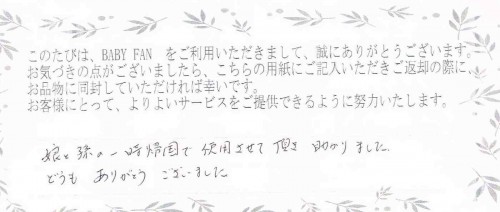 このたびは、BABY FAN をご利用いただきまして、誠にありがとうございます。
お気づきの点がございましたら、こちらの用紙にご記入いただきご返却の際に、
お品物に同封していただければ幸いです。
お客様にとって、よりよいサービスをご提供できるように努力いたします。
娘と孫の一時帰国で使用させて頂き助かりました
どうもありがとうございました